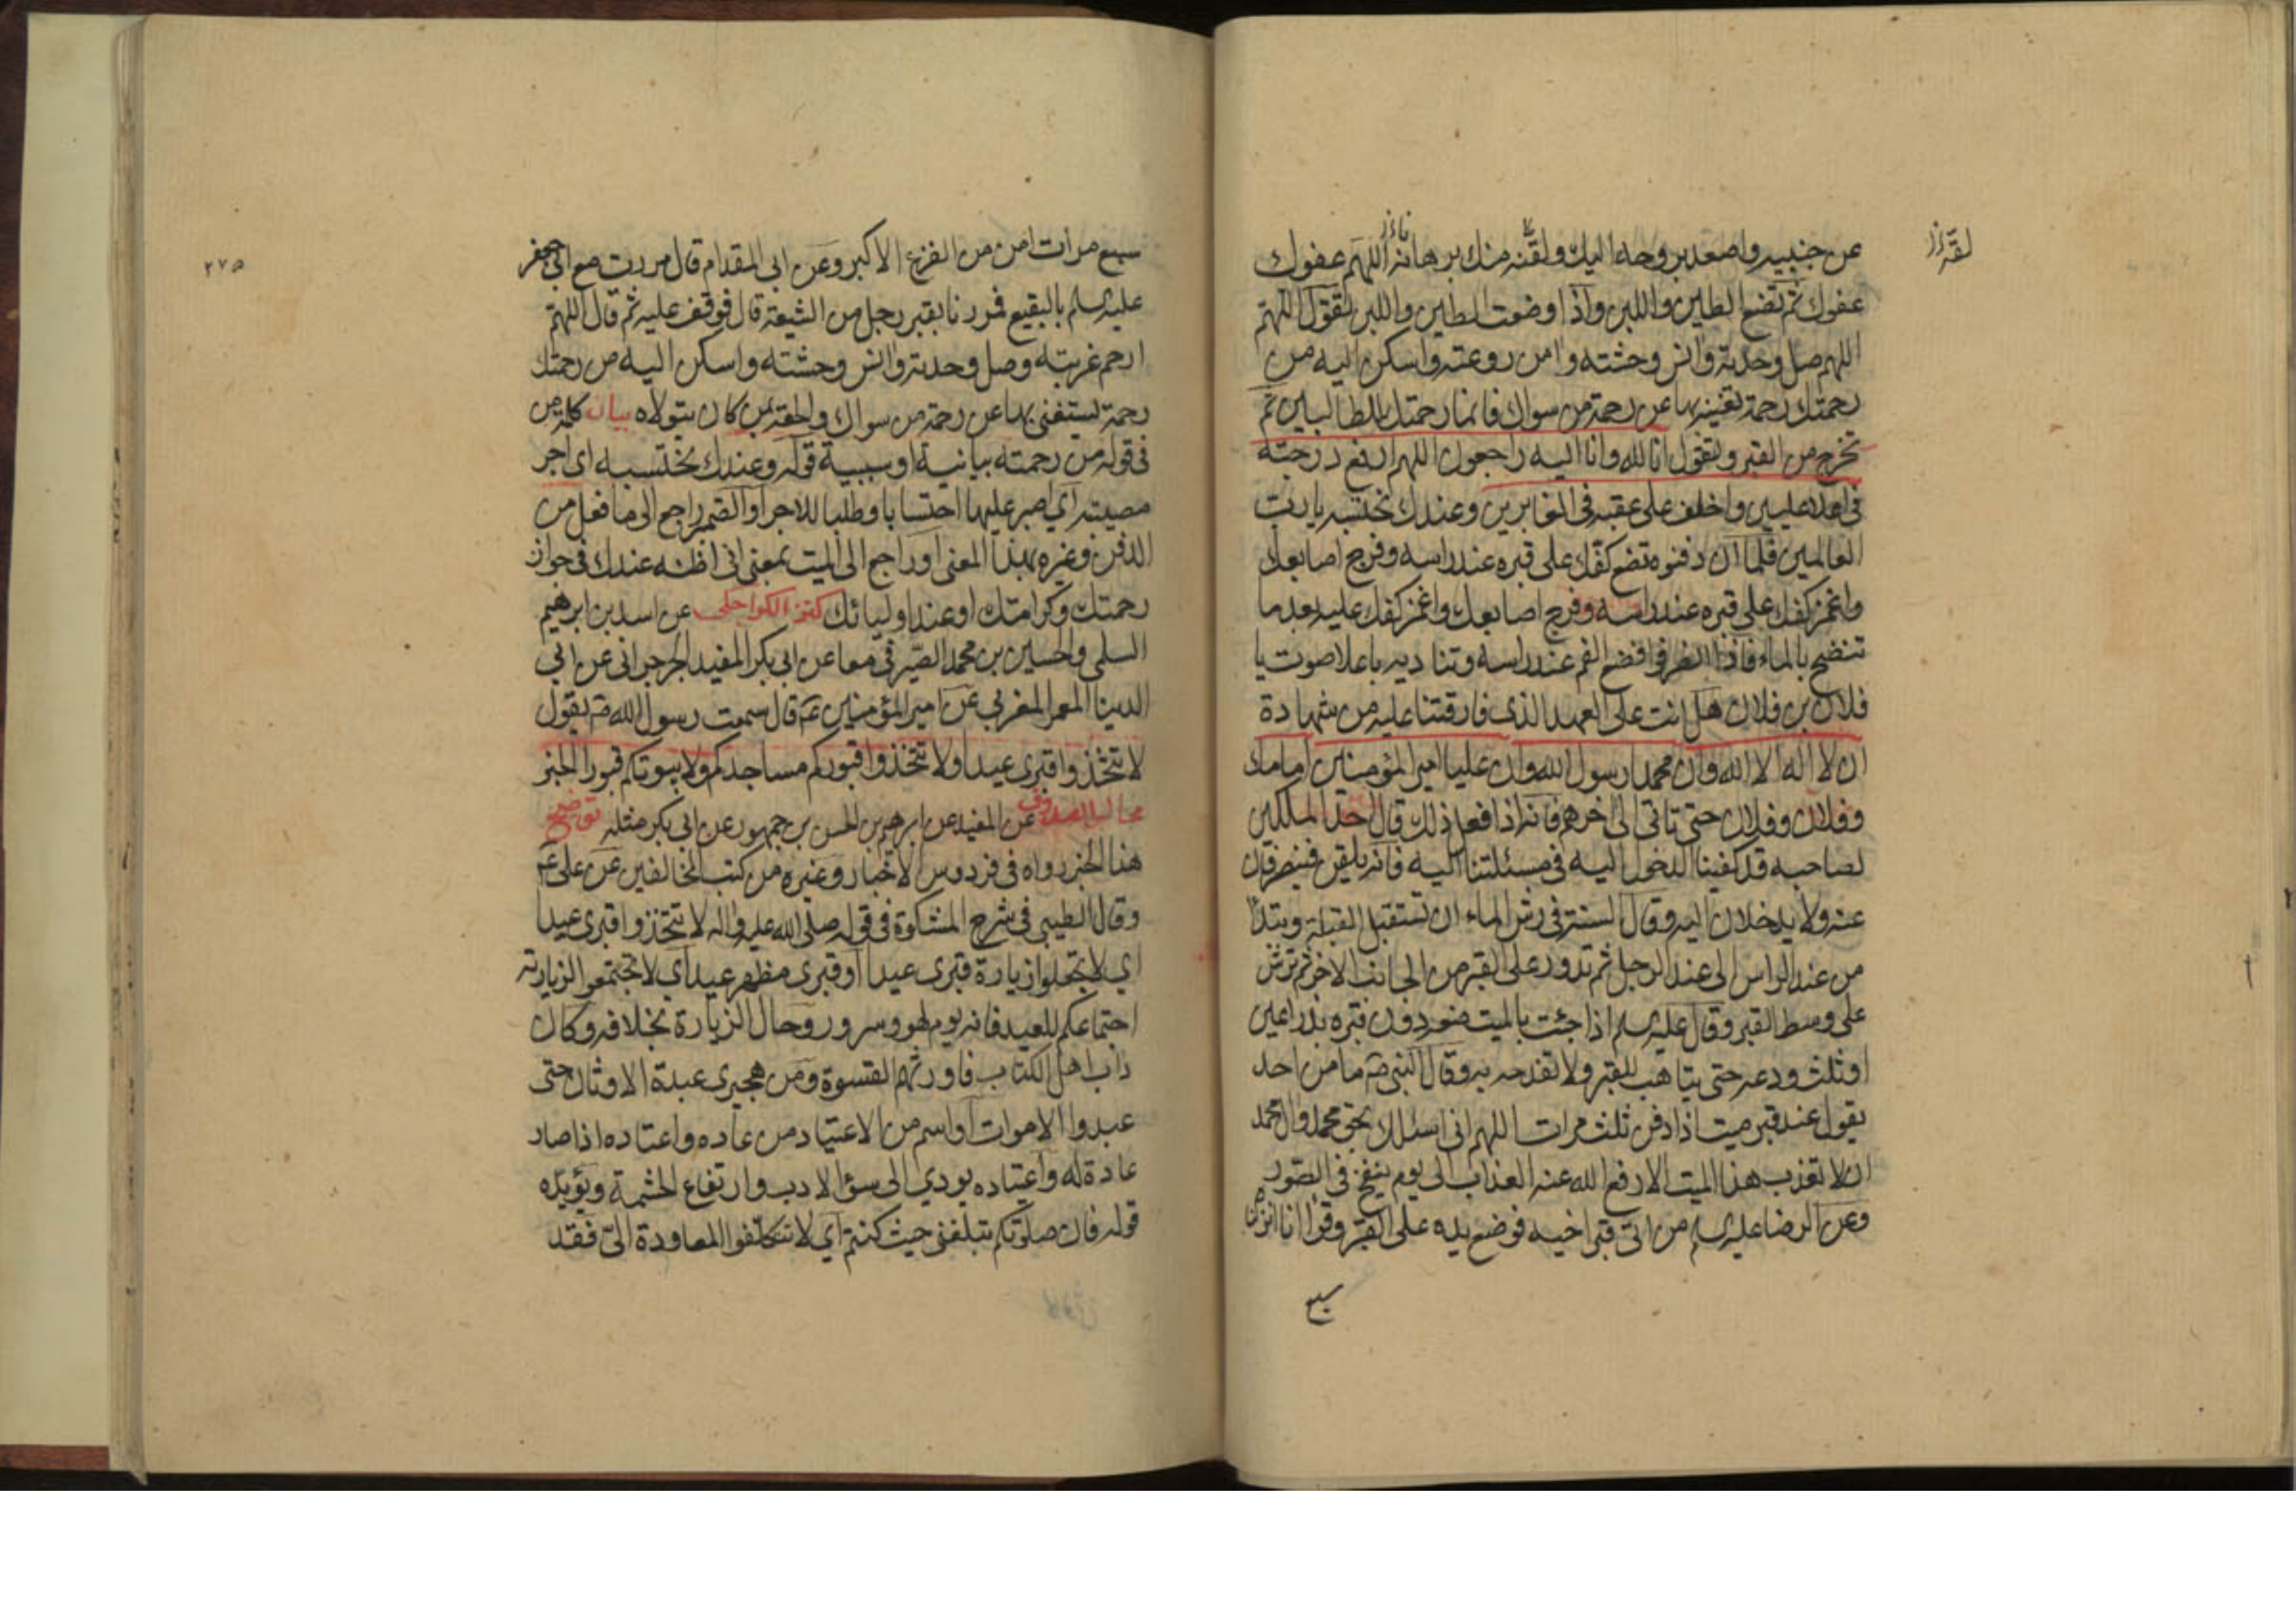 عن جنبيه واصعد بروحه اليك ولقنه منك برهانه اللهم عفوك
عفوك ثم تضع الطين واللبن واذا وضعت الطين واللبن تقول اللهم
اللهم صل وحدته وانس وحشته وامن روعته واسكن اليه من
رحمتك رحمة تغنيه بها عن رحمة من سواك فانما رحمتك للطالبين ثم
تخرج من القبر وتقول انا لله وانا اليه راجعون اللهم ارفع درجته
في اعلا عليين واخلف على عقبه في الغابرين وعندك نحتسبه يا رب
العالمين فلما ان دفنوه تضع كفك على قبره عند راسه وفرج اصابعك
واغمز كفك على قبره عند راسه وفرج اصابعك واغمز كفك عليه بعد ما
تنضح بالماء فاذا انصرفوا فضع الفم عند راسه وتناديه باعلا صوت يا
فلان بن فلان هل انت على العهد الذي فارقتنا عليه من شهادة
ان لا اله الا الله وان محمدا رسول الله وان عليا امير المؤمنين امامك
وفلان وفلان حتى تاتي الى اخرهم فانه اذا فعل ذلك قال احد الملكين
لصاحبه قد كفينا الدخول اليه في مسئلتنا اليه فانه يلقن فينصرفان
عنه ولا يدخلان اليه وقال السنة في رش الماء ان تستقبل القبلة وتبدا
من عند الراس الى عند الرجل ثم تدور على القبر من الجانب الاخر ثم ترش
على وسط القبر وقال عليه السلم اذا جئت بالميت ضعه دون قبره بذراعين
او ثلث ودعه حتى يتاهب للقبر ولا تفدحه به وقال النبي ص ما من احد
يقول عند قبر ميت اذا دفن ثلث مرات اللهم اني اسئلك بحق محمد وال محمد
ان لا تعذب هذا الميت الا رفع الله عنه العذاب الى يوم ينفخ في الصور
وعن الرضا عليه السلم من اتى قبر اخيه فوضع يده على القبر وقرا انا انزلنا
سبع
٢٧٥
سبع مرات امن من الفزع الاكبر وعن ابي المقدام قال مررت مع ابي جعفر
عليه السلم بالبقيع فمررنا بقبر رجل من الشيعة قال فوقف عليه ثم قال اللهم
ارحم غربته وصل وحدته وانس وحشته واسكن اليه من رحمتك
رحمة يستغني بها عن رحمة من سواك والحقه بمن كان يتولاه بيان كلمة من
في قوله من رحمته بيانية او سببية قوله وعندك نحتسبه اي اجر
مصيبته اي اصبر عليها احتسابا وطلبا للاجر او الضمير راجع الى ما فعل من
الدفن وغيره بهذا المعنى او راجع الى الميت بمعنى اني اظنه عندك في جوار
رحمتك وكرامتك او عند اوليائك كنز الكراجكي عن اسد بن ابرهيم
السلمي والحسين بن محمد الصيرفي معا عن ابي بكر المفيد الجرجراني عن ابي
الدنيا المعمر المغربي عن امير المؤمنين ع قال سمعت رسول الله ص يقول
لا تتخذوا قبري عيدا ولا تتخذوا قبوركم مساجدكم ولا بيوتكم قبورا الخبر
مجالس الصدوق عن المفيد عن ابرهيم بن الحسن بن جمهور عن ابي بكر مثله توضيح
هذا الخبر رواه في فردوس الاخبار وغيره من كتب المخالفين عن علي ع
وقال الطيبي في شرح المشكوة في قوله صلى الله عليه واله لا تتخذوا قبري عيدا
اي لا تجعلوا زيارة قبري عيدا او قبري مظهر عيد اي لا تجتمعوا لزيارته
اجتماعكم للعيد فانه يوم لهو وسرور وحال الزيارة بخلافه وكان
داب اهل الكتاب فاورثهم القسوة ومن هجيرى عبدة الاوثان حتى
عبدوا الاموات او اسم من الاعتياد من عاده واعتاده اذا صار
عادة له واعتياده يودي الى سوء الادب وارتفاع الحشمة ويؤيده
قوله فان صلوتكم تبلغني حيث كنتم اي لا تتكلفوا المعاودة الي فقد